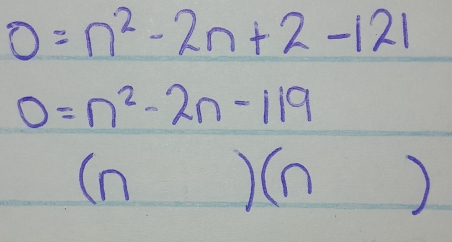 0 = n² - 2n + 2 - 121
0 = n² - 2n - 119
(n )(n )